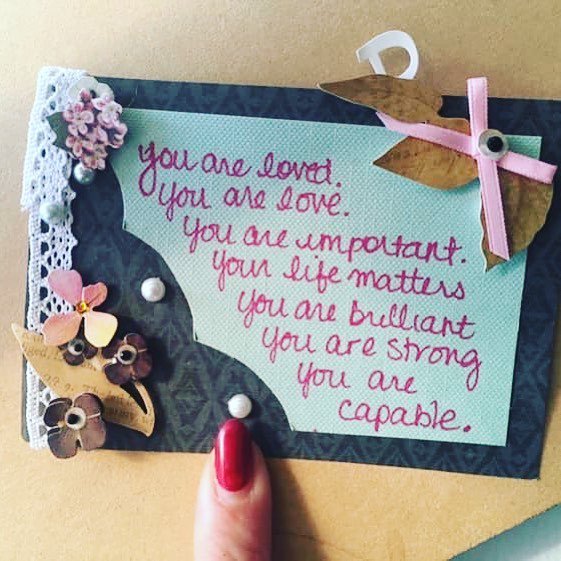 D
you are loved.
you are love.
you are important.
your life matters
you are brilliant
you are strong
you are
capable.